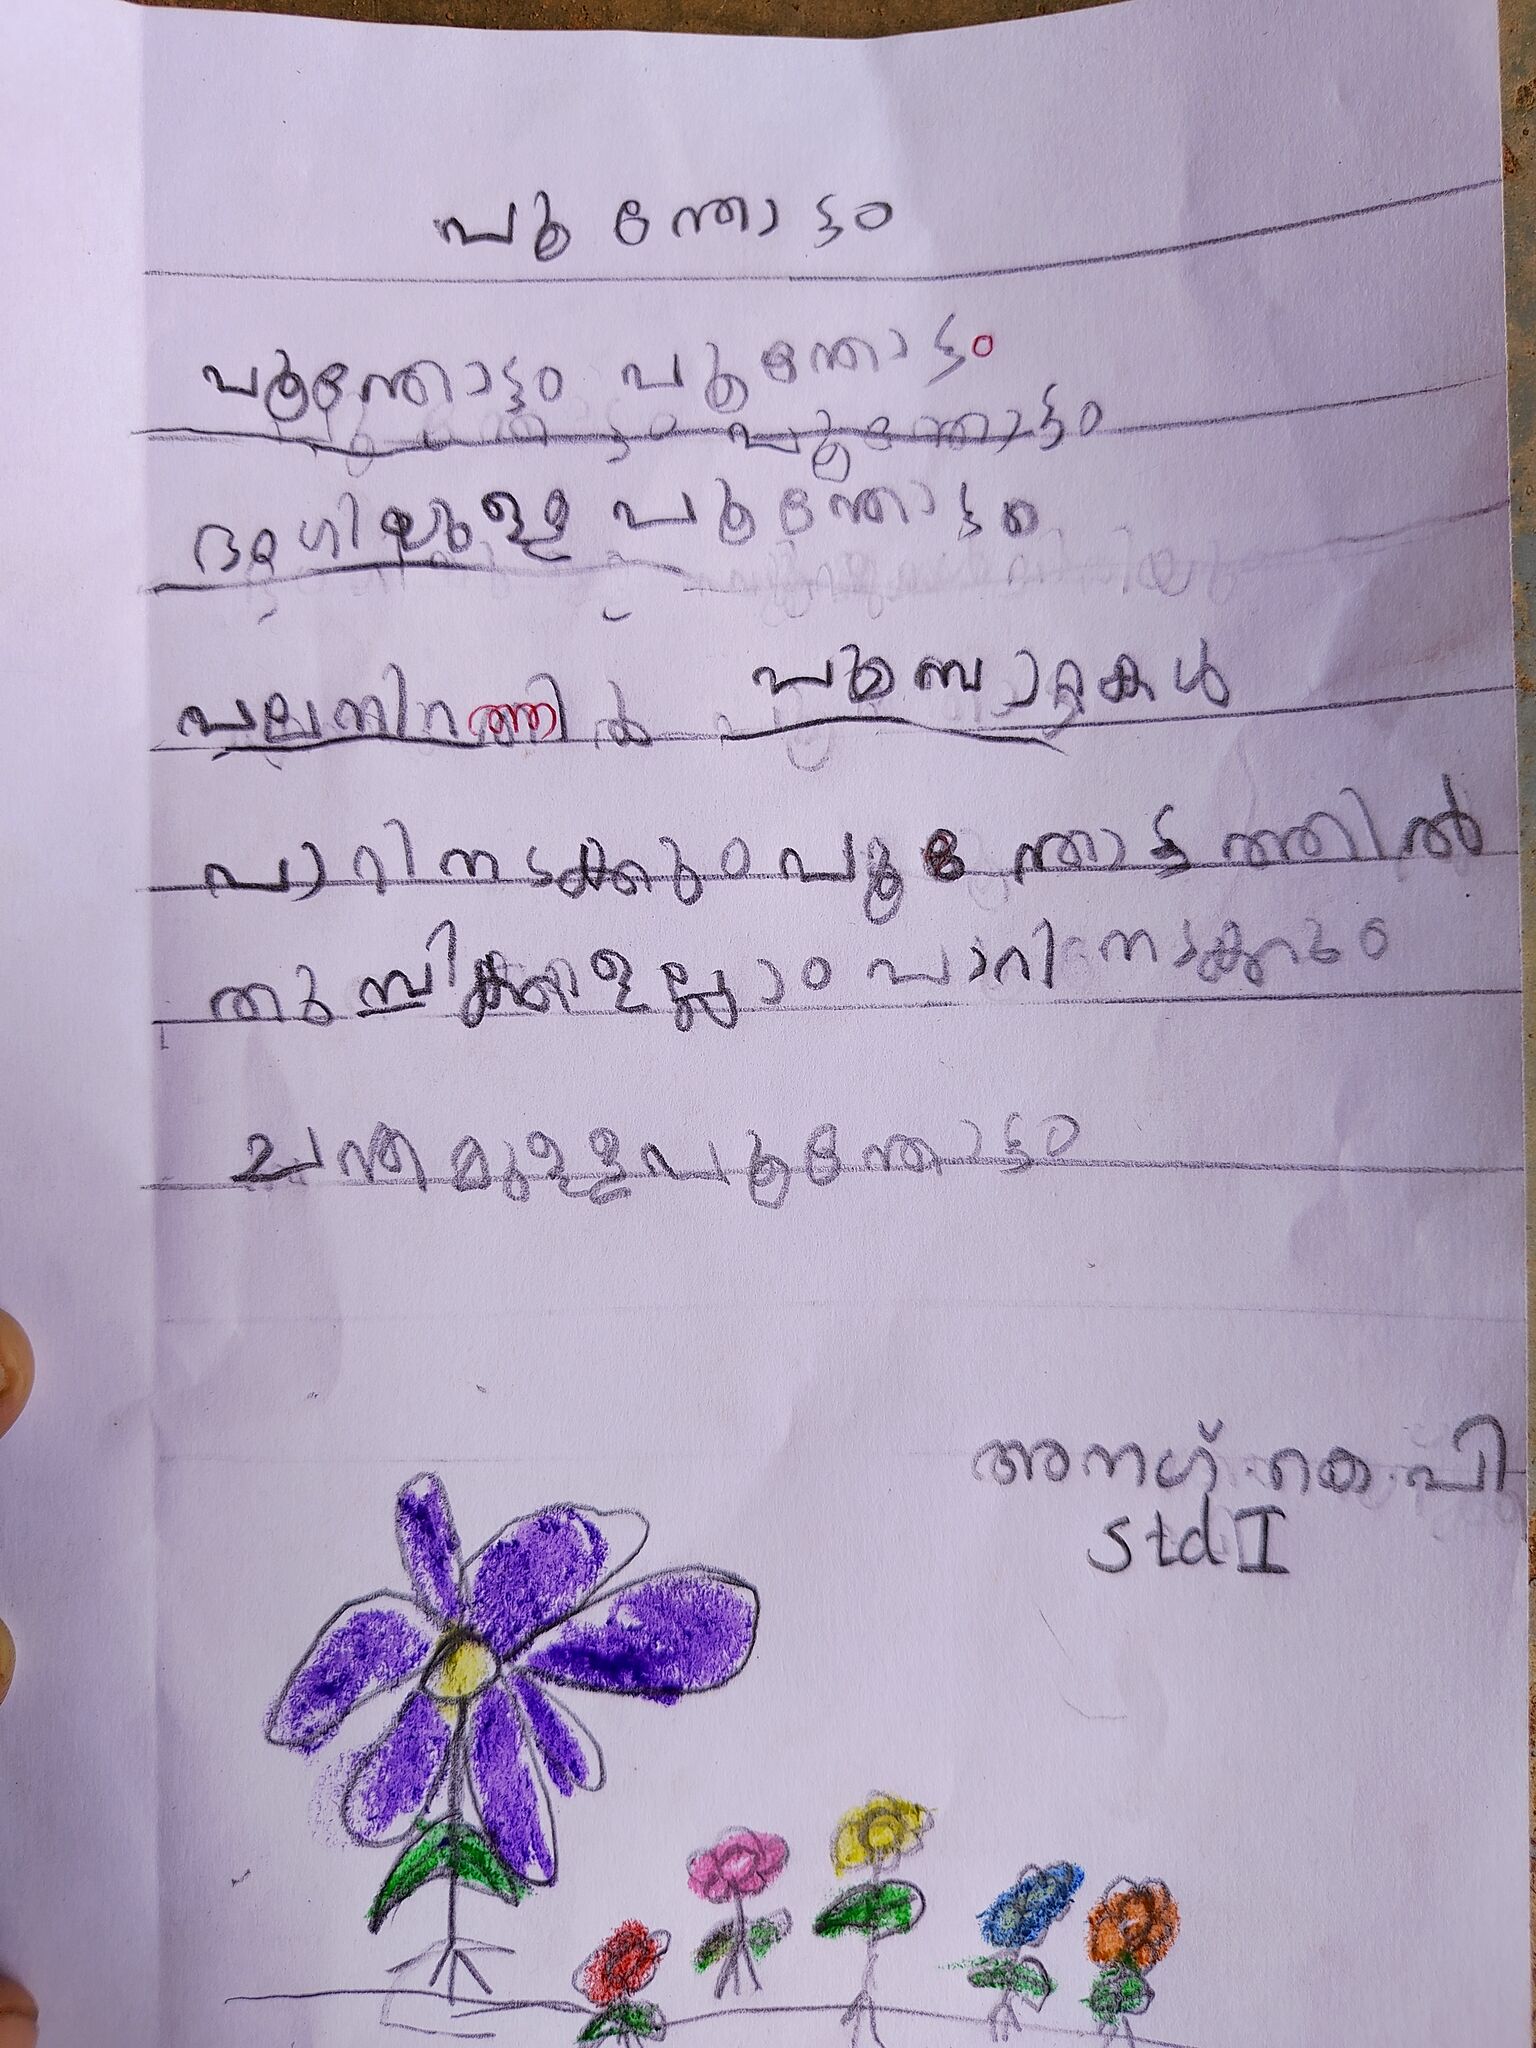 പൂന്തോട്ടം
പൂന്തോട്ടം പൂന്തോട്ടം
പൂന്തോട്ടം
ഭംഗിയുള്ള പൂന്തോട്ടം
പലനിറത്തിൽ പൂമ്പാറ്റകൾ
പാറിനടക്കും പൂന്തോട്ടത്തിൽ
തുമ്പികളെല്ലാം പാറി നടക്കും
ചന്തമുള്ള പൂന്തോട്ടം
അനഗ്. കെ. പി
Std I